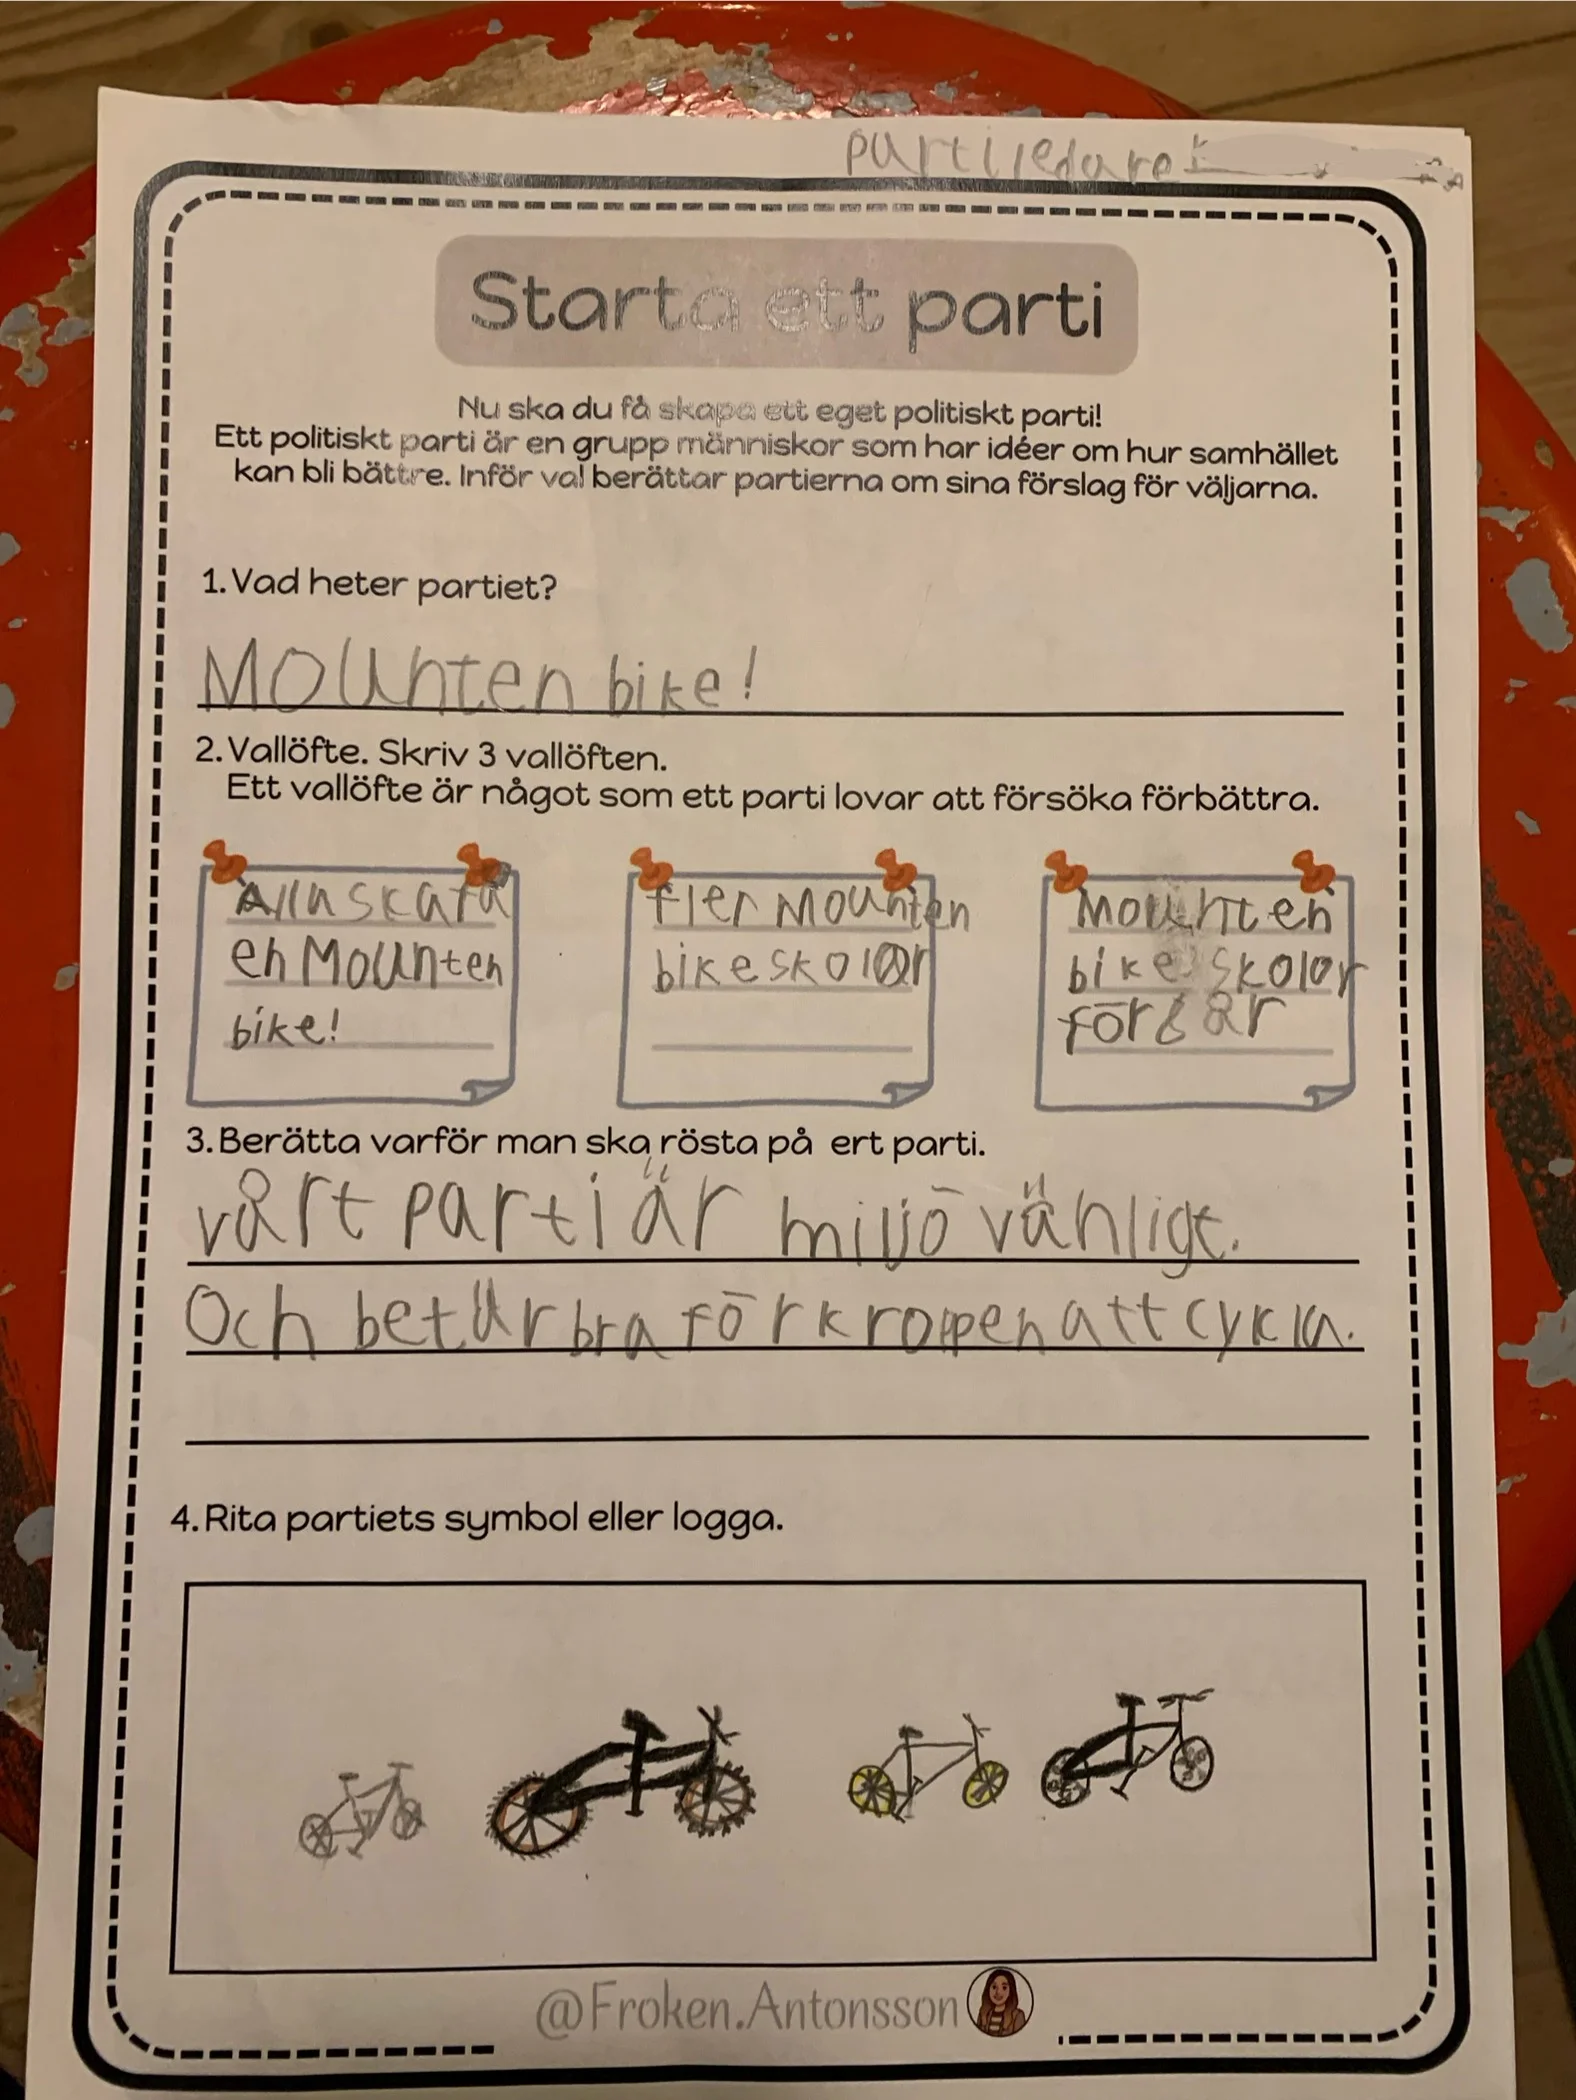 partiledare:
Starta ett parti
Nu ska du få skapa ett eget politiskt parti!
Ett politiskt parti är en grupp människor som har idéer om hur samhället
kan bli bättre. Inför val berättar partierna om sina förslag för väljarna.
1. Vad heter partiet?
Mounten bike!
2. Vallöfte. Skriv 3 vallöften.
Ett vallöfte är något som ett parti lovar att försöka förbättra.
Alla ska få
en Mounten
bike!
fler Mounten
bike skolor
Mounten
bike skolor
för
3. Berätta varför man ska rösta på ert parti.
vårt parti är miljö vänligt.
Och bet är bra för kroppen att cykla.
4. Rita partiets symbol eller logga.
@Froken.Antonsson